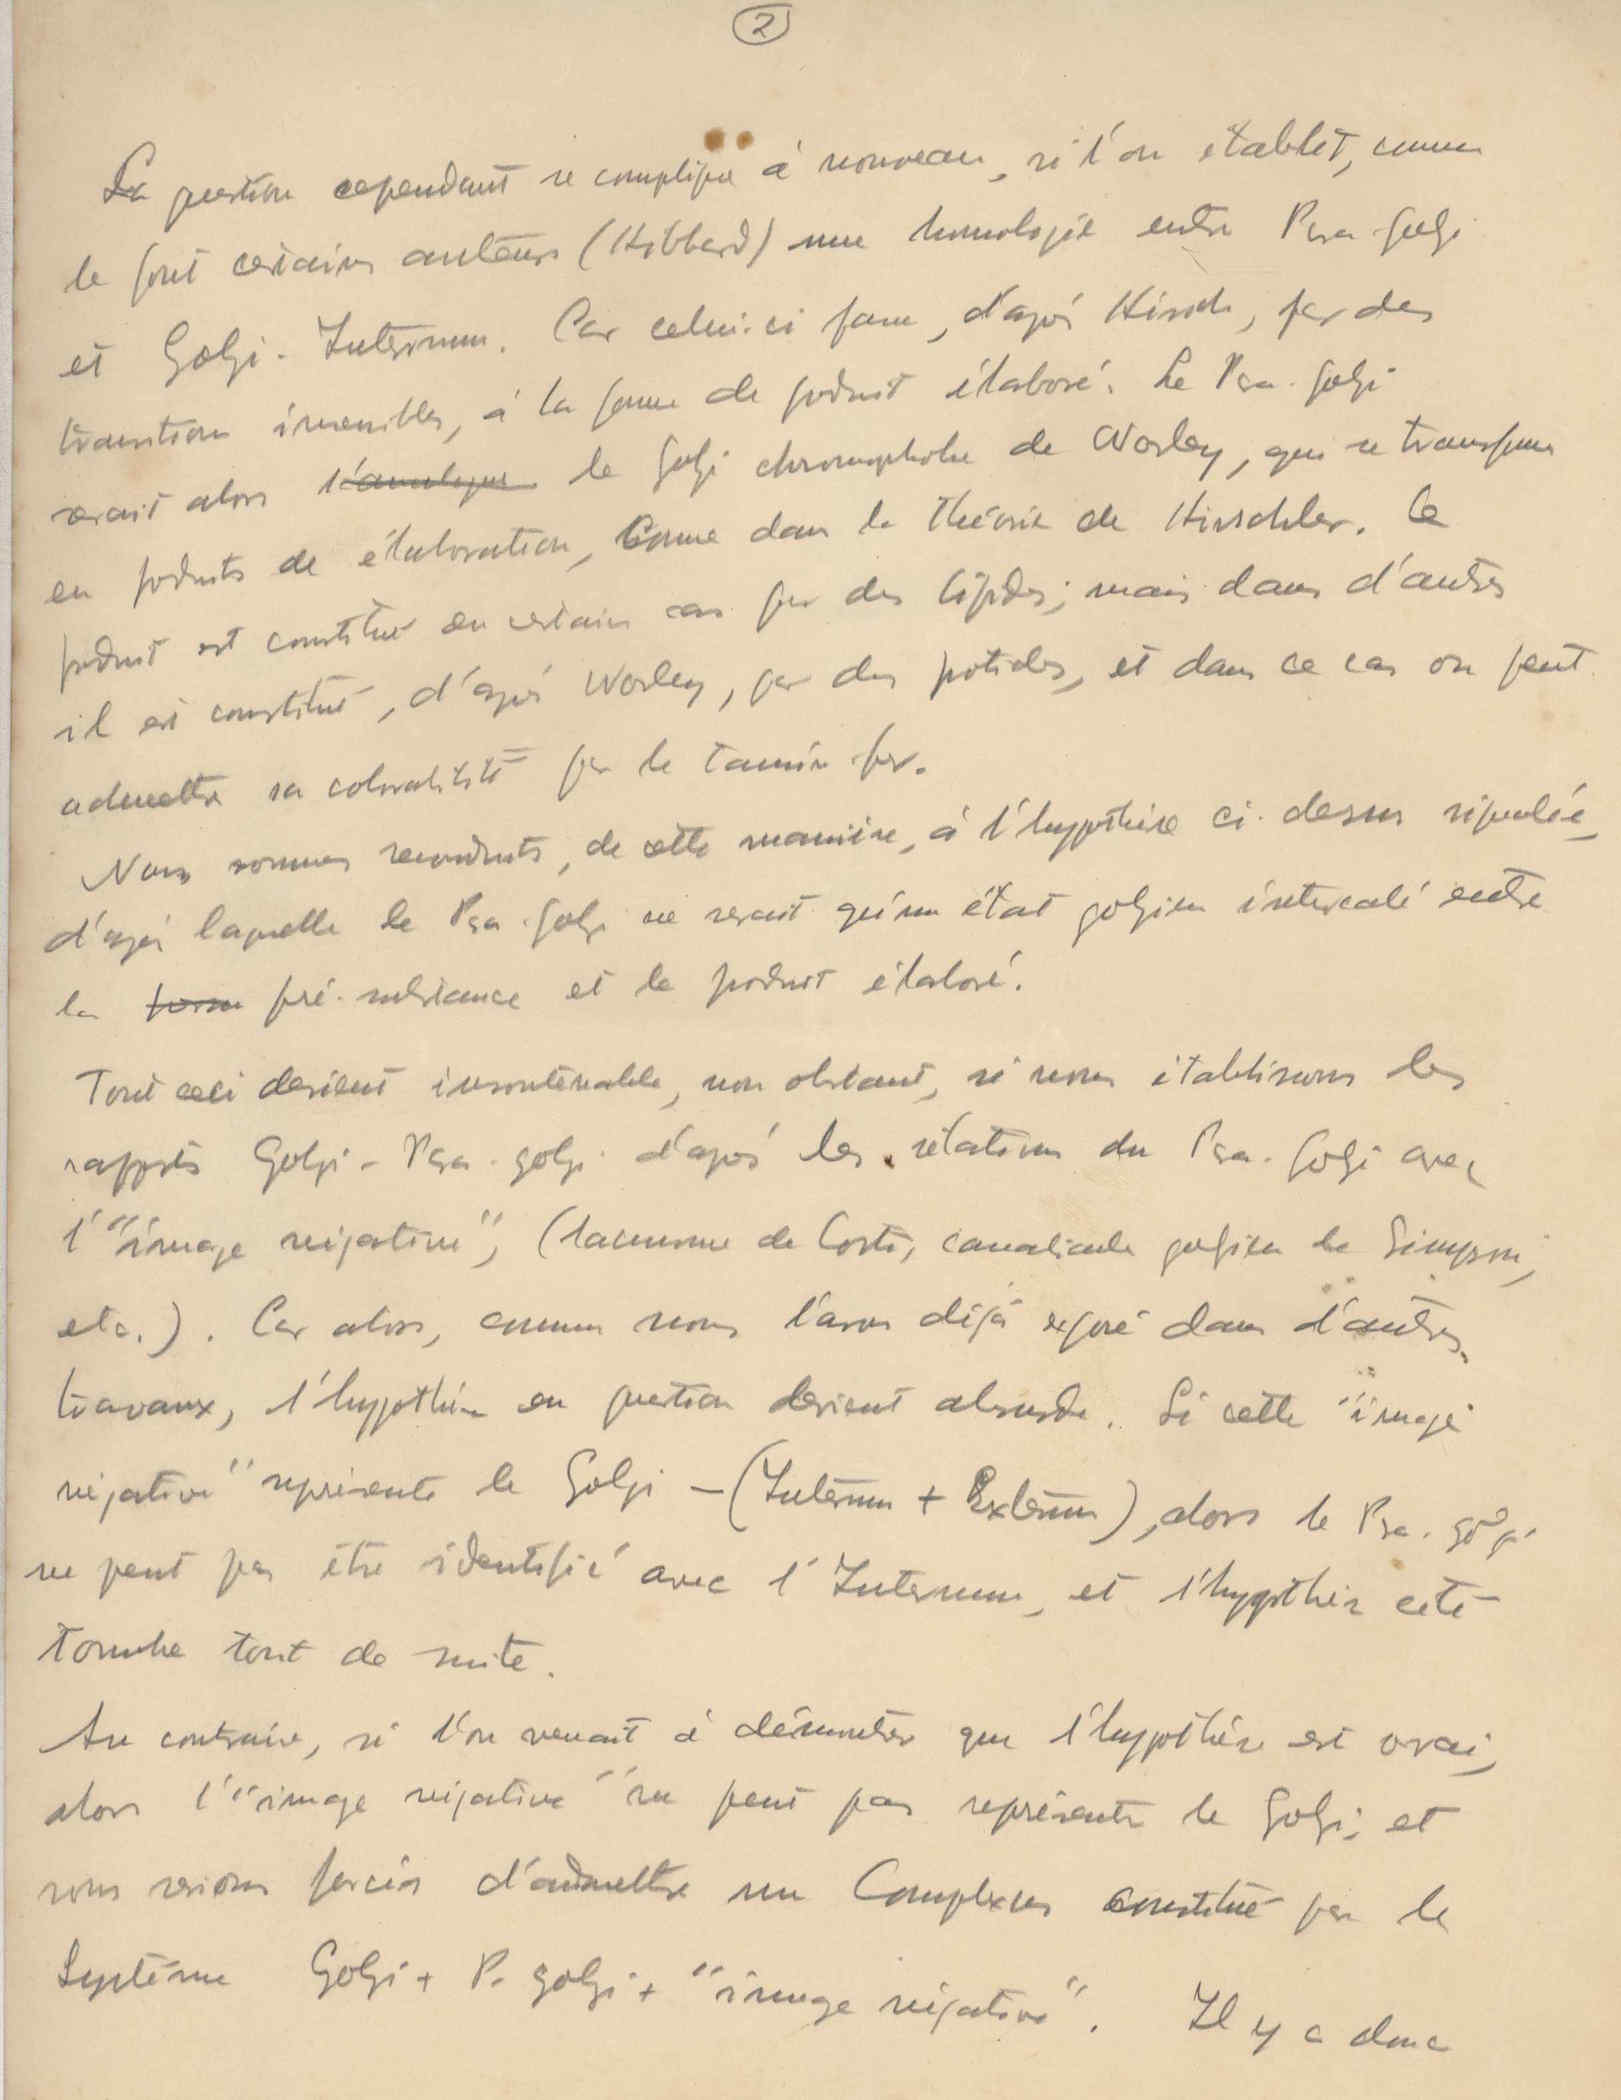 2
La question cependant se complique à nouveau, si l'on établit, comme
le font certains auteurs (Hibbard) une homologie entre Para-golgi
et Golgi-Internum. Car celui-ci passe, d'après Hirsch, par des
transitions insensibles, à la forme de produit élaboré. Le Para-golgi
serait alors l'analogue le Golgi chromophobe de Worley, qui se transforme
en produits de élaboration, comme dans la théorie de Hirschler. Ce
produit est constitué en certains cas par des lipides; mais dans d'autres
il est constitué, d'après Worley, par des protides, et dans ce cas on peut
admettre sa colorabilité par le tannin-fer.
Nous sommes reconduits, de cette manière, à l'hypothèse ci-dessus signalée,
d'après laquelle le Para-golgi ne serait qu'un état golgien intercalé entre
la forme pré-substance et le produit élaboré.
Tout ceci devient insoutenable, non obstant, si nous établissons les
rapports Golgi-Para-golgi d'après les relations du Para-Golgi avec
l'"image négative", (lacunome de Corti, canalicule golgien de Simpson,
etc.). Car alors, comme nous l'avons déjà exposé dans d'autres
travaux, l'hypothèse en question devient absurde. Si cette "image
négative" représente le Golgi-(Internum + Externum), alors le Para-golgi
ne peut pas être identifié avec l'Internum, et l'hypothèse cité
tombe tout de suite.
Au contraire, si l'on venait à démontrer que l'hypothèse est vrai,
alors l'"image négative" ne peut pas représenter le Golgi; et
nous serions forcés d'admettre un Complexus constitué par le
Système Golgi + P. golgi + "image négative". Il y a donc